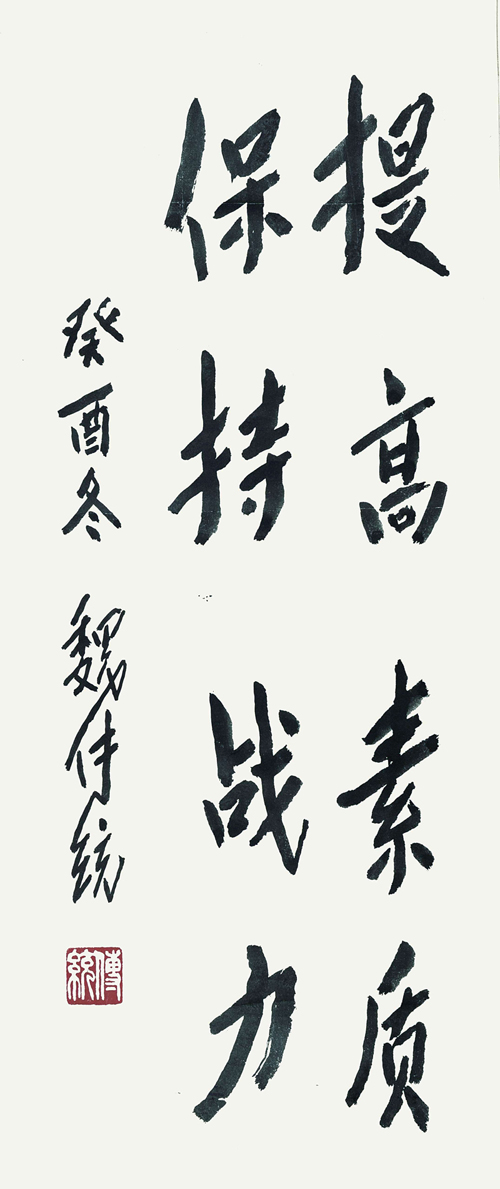 提高素质
保持战力
癸酉冬 魏传统
傳統